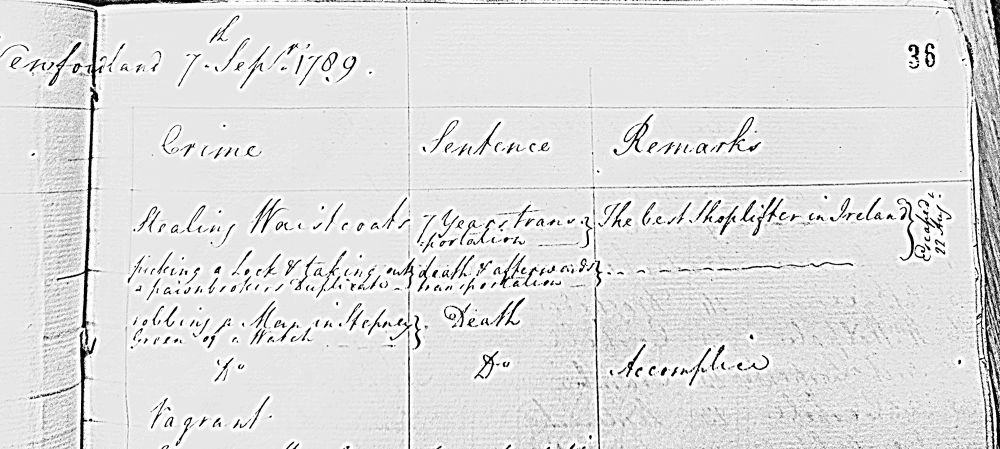 Newfoundland 7.th Sepr. 1789.
36
Crime Sentence Remarks
Stealing Waistcoats 7 Years trans- The best Shoplifter in Ireland Escaped
portation 22 Aug.
picking a Lock & taking out death & afterwards
a pawnbrokers Duplicate transportation
robbing a Man in Stepney Death
Green of a Watch
Do Do Accomplice
Vagrant